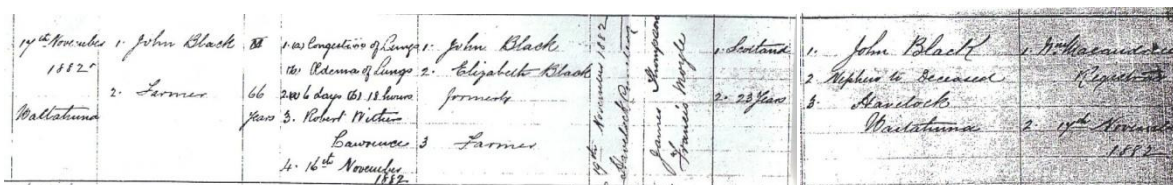 17th November
1882
Waitahuna
1. John Black
2. Farmer
M
66
years
1. (a) Congestion of Lungs
(b) Oedema of Lungs
2. (a) 6 days (b) 18 hours
3. Robert Withers
Lawrence
4. 16th November
1882
1. John Black
2. Elizabeth Black
formerly
3 Farmer
19th November 1882
Havelock Cemetery
James Thompson
Francis Moyle
1. Scotland
2. 23 Years
1. John Black
2 Nephew to Deceased
3. Havelock
Waitahuna
1.
Registrar
2. 17th November
1882